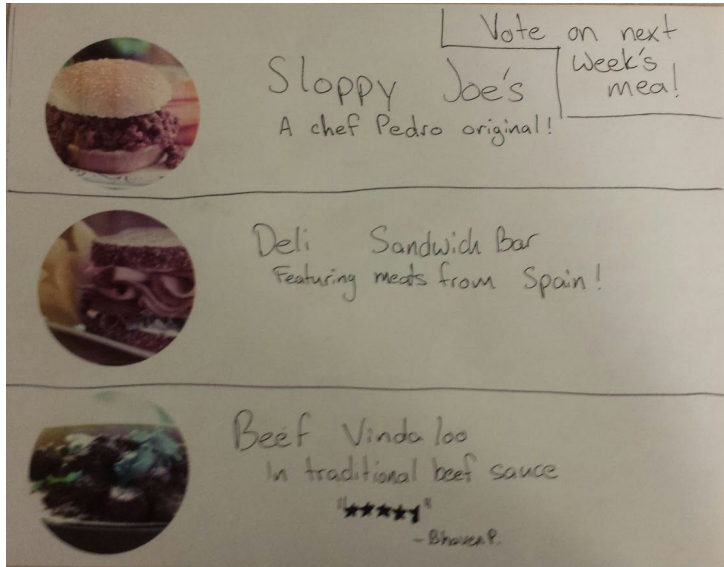 Vote on next
week's
meal!
Sloppy Joe's
A chef Pedro original!
Deli Sandwich Bar
Featuring meats from Spain!
Beef Vindaloo
In traditional beef sauce
"★★★★⯨"
-Bhaven P.